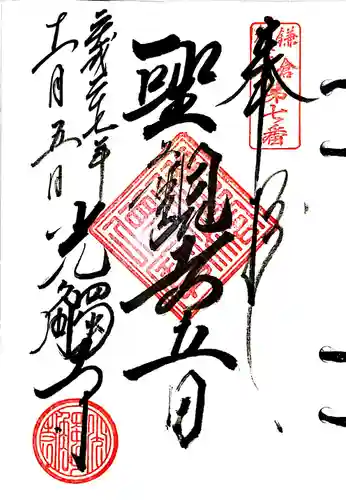 鎌倉第七番
奉拝
聖觀世音
平成二七年
十一月五日
光觸寺